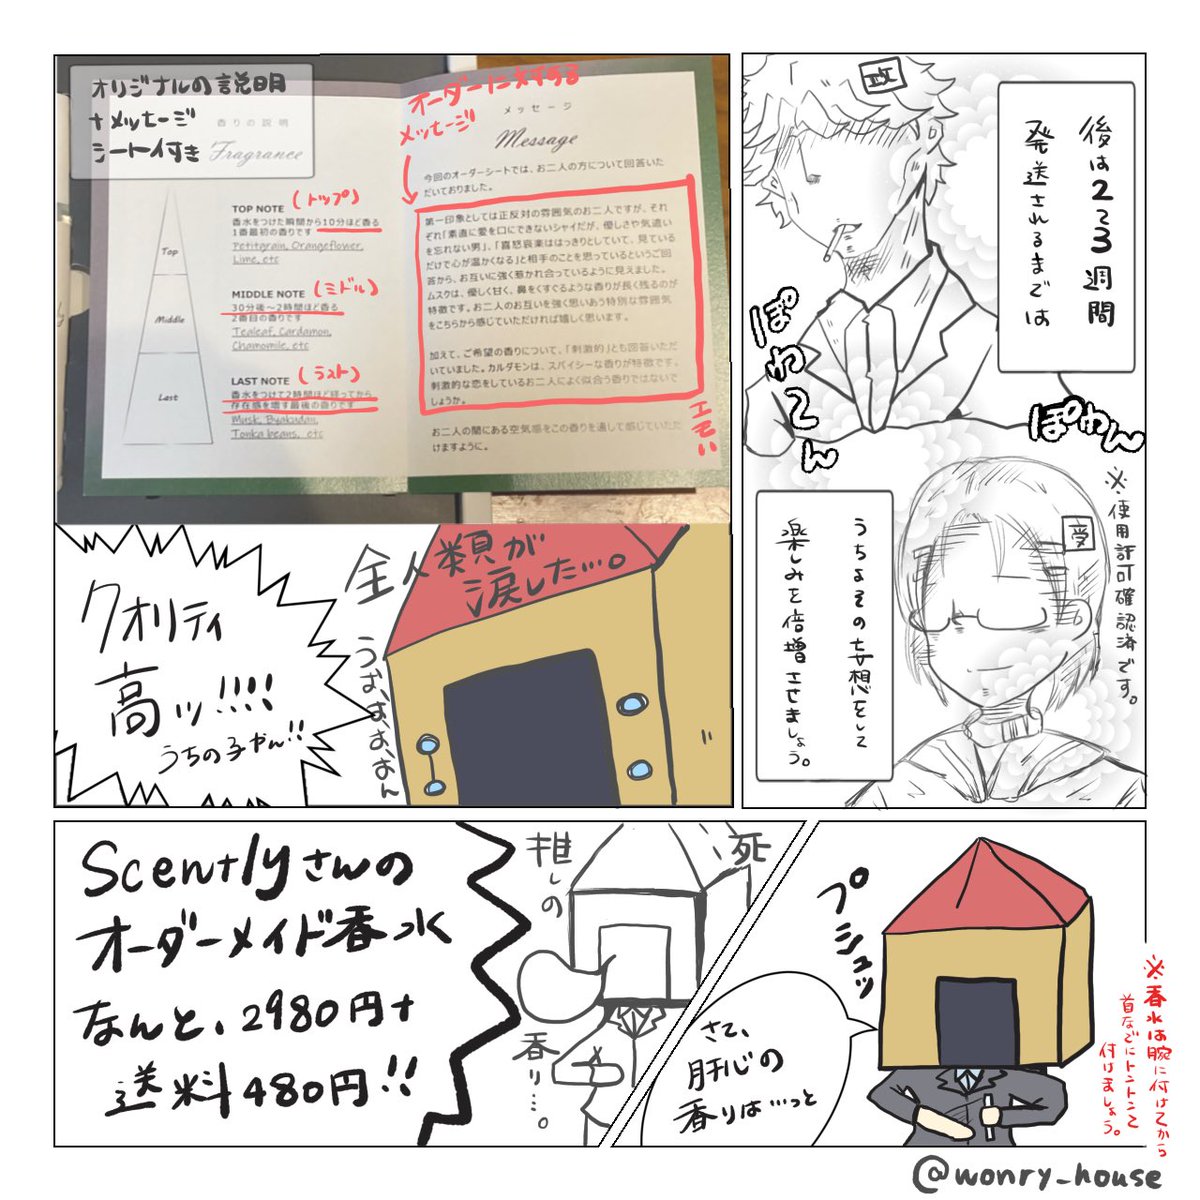 後は2~3週間
発送されるまでは
攻
ぽわ~ん
ぽわん
※使用許可確認済です。
受
うちよその妄想をして
楽しみを倍増させましょう。
オリジナルの説明
+メッセージ
シート付き
香りの説明
Fragrance
Top
Middle
Last
TOP NOTE (トップ)
香水をつけた瞬間から10分ほど香る
1番最初の香りです
Petitgrain, Orangeflower,
Lime, etc
MIDDLE NOTE (ミドル)
30分後~2時間ほど香る
2番目の香りです
Tealeaf, Cardamon,
Chamomile, etc
LAST NOTE (ラスト)
香水をつけて2時間ほど経ってから
存在感を増す最後の香りです
Musk, Byakudan,
Tonka beans, etc
オーダーに対する
メッセージ
メッセージ
Message
今回のオーダーシートでは、お二人の方について回答いた
だいておりました。
第一印象としては正反対の雰囲気のお二人ですが、それ
ぞれ「素直に愛を口にできないシャイだが、優しさや気遣い
を忘れない男」、「喜怒哀楽ははっきりとしていて、見ている
だけで心が温かくなる」と相手のことを思っているというご回
答から、お互いに強く惹かれ合っているように見えました。
ムスクは、優しく甘く、鼻をくすぐるような香りが長く残るのが
特徴です。お二人のお互いを強く思いあう特別な雰囲気
をこちらから感じていただければ嬉しく思います。
加えて、ご希望の香りについて、「刺激的」とも回答いただ
いていました。カルダモンは、スパイシーな香りが特徴です。
刺激的な恋をしているお二人によく似合う香りではないで
しょうか。
エモい
お二人の間にある空気感をこの香りを通して感じていただ
けますように。
全人類が
涙した…。
うお、お、お、おん
クオリティ
高ッ!!!!
うちの子やん!!
プシュッ
さて、
肝心の
香りは…っと
※香水は腕に付けてから
首などにトントンと
付けましょう。
死
推しの
香り…。
Scentlyさんの
オーダーメイド香水
なんと、2980円+
送料480円!!
@wonry_house